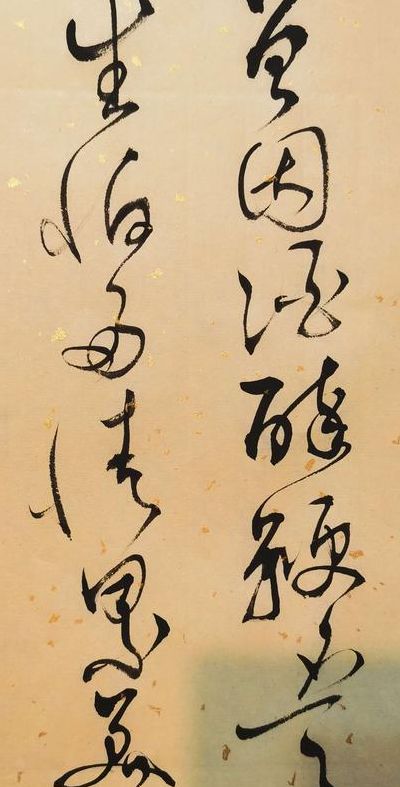 曾因酒醉鞭名
生怕多情累美